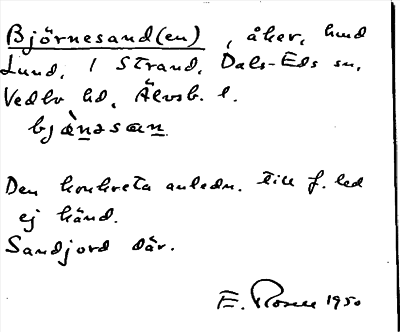 Björnesand(en), åker, hmd
Lund, 1 Strand, Dals-Eds sn,
Vedbo hd, Älvsb. l.
bjὰn̲əsan̲
Den konkreta anledn. till f. led
ej känd.
Sandjord där.
E. Rosell 1950